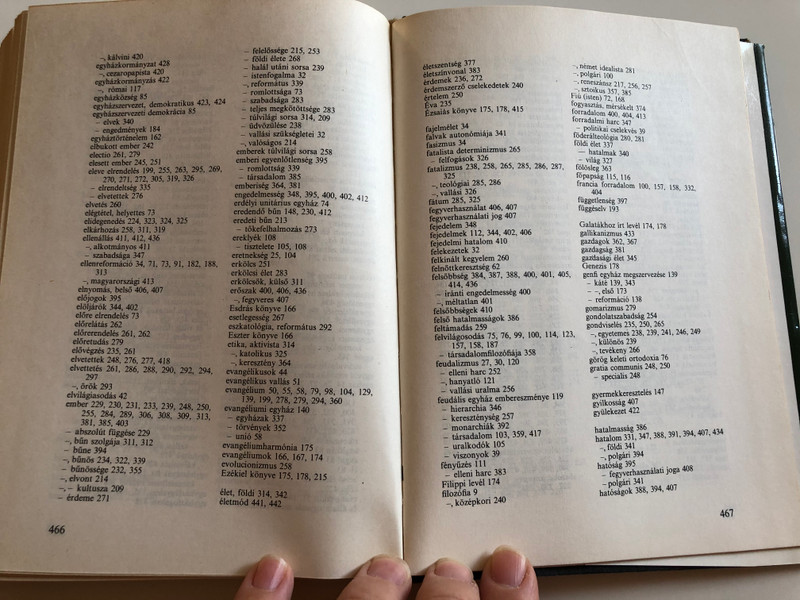 –, kálvini 420
egyházkormányzat 428
–, cezaropapista 420
egyházkormányzás 422
–, római 117
egyházközség 85
egyházszervezet, demokratikus 423, 424
egyházszervezeti demokrácia 85
– elvek 340
– engedmények 184
egyháztörténelem 162
elbukott ember 242
electio 261, 279
elesett ember 245, 251
eleve elrendelés 199, 255, 263, 295, 269,
270, 271, 272, 305, 319, 326
– elrendeltség 335
– elvetettek 276
elvetés 260
elégtétel, helyettes 73
elidegenedés 224, 323, 324, 325
elkárhozás 258, 311, 319
ellenállás 411, 412, 436
–, alkotmányos 411
– szabadsága 347
ellenreformáció 34, 71, 73, 91, 182, 188,
313
–, magyarországi 413
elnyomás, belső 406, 407
előjogok 395
elöljárók 344, 402
előre elrendelés 73
előrelátás 262
előrerendelés 261, 262
előretudás 279
elővégzés 235, 261
elvetettek 248, 276, 277, 418
elvettetés 261, 286, 288, 290, 292, 294,
297
–, örök 293
elvilágiasodás 42
ember 229, 230, 231, 233, 239, 248, 250,
255, 284, 289, 306, 308, 309, 313,
381, 385, 403
– abszolút függése 229
–, bűn szolgája 311, 312
– bűne 394
–, bűnös 234, 322, 339
– bűnössége 232, 355
–, elvont 214
–, – kultusza 209
– érdeme 271
– felelőssége 215, 253
– földi élete 268
– halál utáni sorsa 239
– istenfogalma 32
–, református 339
– romlottsága 73
– szabadsága 283
– teljes megkötöttsége 283
– túlvilági sorsa 314, 209
– üdvözülése 238
– vallási szükségletei 32
–, valóságos 214
emberek túlvilági sorsa 258
emberi egyenlőtlenség 395
– romlottság 339
– társadalom 385
emberiség 364, 381
engedelmesség 348, 395, 400, 402, 412
erdélyi unitárius egyház 74
eredendő bűn 148, 230, 412
eredeti bűn 213
– tőkefelhalmozás 273
ereklyék 108
– tisztelete 105, 108
eretnekség 25, 104
erkölcs 251
erkölcsi élet 283
erkölcsök, külső 311
erőszak 400, 406, 436
–, fegyveres 407
Esdrás könyve 166
esetlegesség 267
eszkatológia, református 292
Eszter könyve 166
etika, aktivista 314
–, katolikus 325
–, keresztény 364
evangélikusok 44
evangélikus vallás 51
evangélium 50, 55, 58, 79, 98, 104, 129,
139, 199, 278, 279, 294, 360
evangéliumi egyház 140
– egyházak 337
– törvények 352
– unió 58
evangéliumharmónia 175
evangéliumok 166, 167, 174
evolucionizmus 258
Ezékiel könyve 175, 178, 215
élet, földi 314, 342
életmód 441, 442
466
életszentség 377
életszínvonal 383
érdemek 236, 272
érdemszerző cselekedetek 240
értelem 250
Éva 235
Ézsaiás könyve 175, 178, 415
fajelmélet 34
falvak autonómiája 341
fasizmus 34
fatalista determinizmus 265
– felfogások 326
fatalizmus 238, 258, 265, 285, 286, 287,
325
–, teológiai 285, 286
–, vallási 326
fátum 285, 325
fegyverhasználat 406, 407
fegyverhasználati jog 407
fejedelem 348
fejedelmek 112, 344, 402, 406
fejedelmi hatalom 410
felekezetek 32
felkínált kegyelem 260
felnőttkeresztség 62
felsőbbség 384, 387, 388, 400, 401, 405,
414, 436
– iránti engedelmesség 400
–, méltatlan 401
felsőbbségek 410
felső hatalmasságok 386
feltámadás 259
felvilágosodás 75, 76, 99, 100, 114, 123,
157, 158, 187
– társadalomfilozófiája 358
feudalizmus 27, 30, 120
– elleni harc 252
–, hanyatló 121
– vallási uralma 256
feudális egyház embereszménye 119
– hierarchia 346
– kereszténység 257
– monarchiák 392
– társadalom 103, 359, 417
– uralkodók 105
– viszonyok 39
fényűzés 111
– elleni harc 383
Filippi levél 174
filozófia 9
–, középkori 240
–, német idealista 281
–, polgári 100
–, reneszánsz 217, 256, 257
–, sztoikus 357, 385
Fiú (isten) 72, 168
fogyasztás, mérsékelt 374
forradalom 400, 404, 413
forradalmi harc 347
– politikai cselekvés 39
föderálteológia 280, 281
földi élet 337
— hatalmak 340
– világ 327
fölösleg 363
főpapság 115, 116
francia forradalom 100, 157, 158, 332,
404
függetlenség 397
függéselv 193
Galatákhoz írt levél 174, 178
gallikanizmus 433
gazdagok 362, 367
gazdagság 381
gazdasági élet 345
Genezis 178
genfi egyház megszervezése 139
– káté 139, 343
– –, első 173
– reformáció 138
gomarizmus 279
gondolatszabadság 254
gondviselés 235, 250, 265
–, egyetemes 238, 239, 241, 246, 249
–, különös 239
–, tevékeny 266
görög keleti ortodoxia 76
gratia communis 248, 250
– specialis 248
gyermekkeresztelés 147
gyilkosság 407
gyülekezet 422
hatalmasság 386
hatalom 331, 347, 388, 391, 394, 407, 434
–, földi 341
–, polgári 394
hatóság 395
– fegyverhasználati joga 408
– polgári 341
hatóságok 388, 394, 407
467